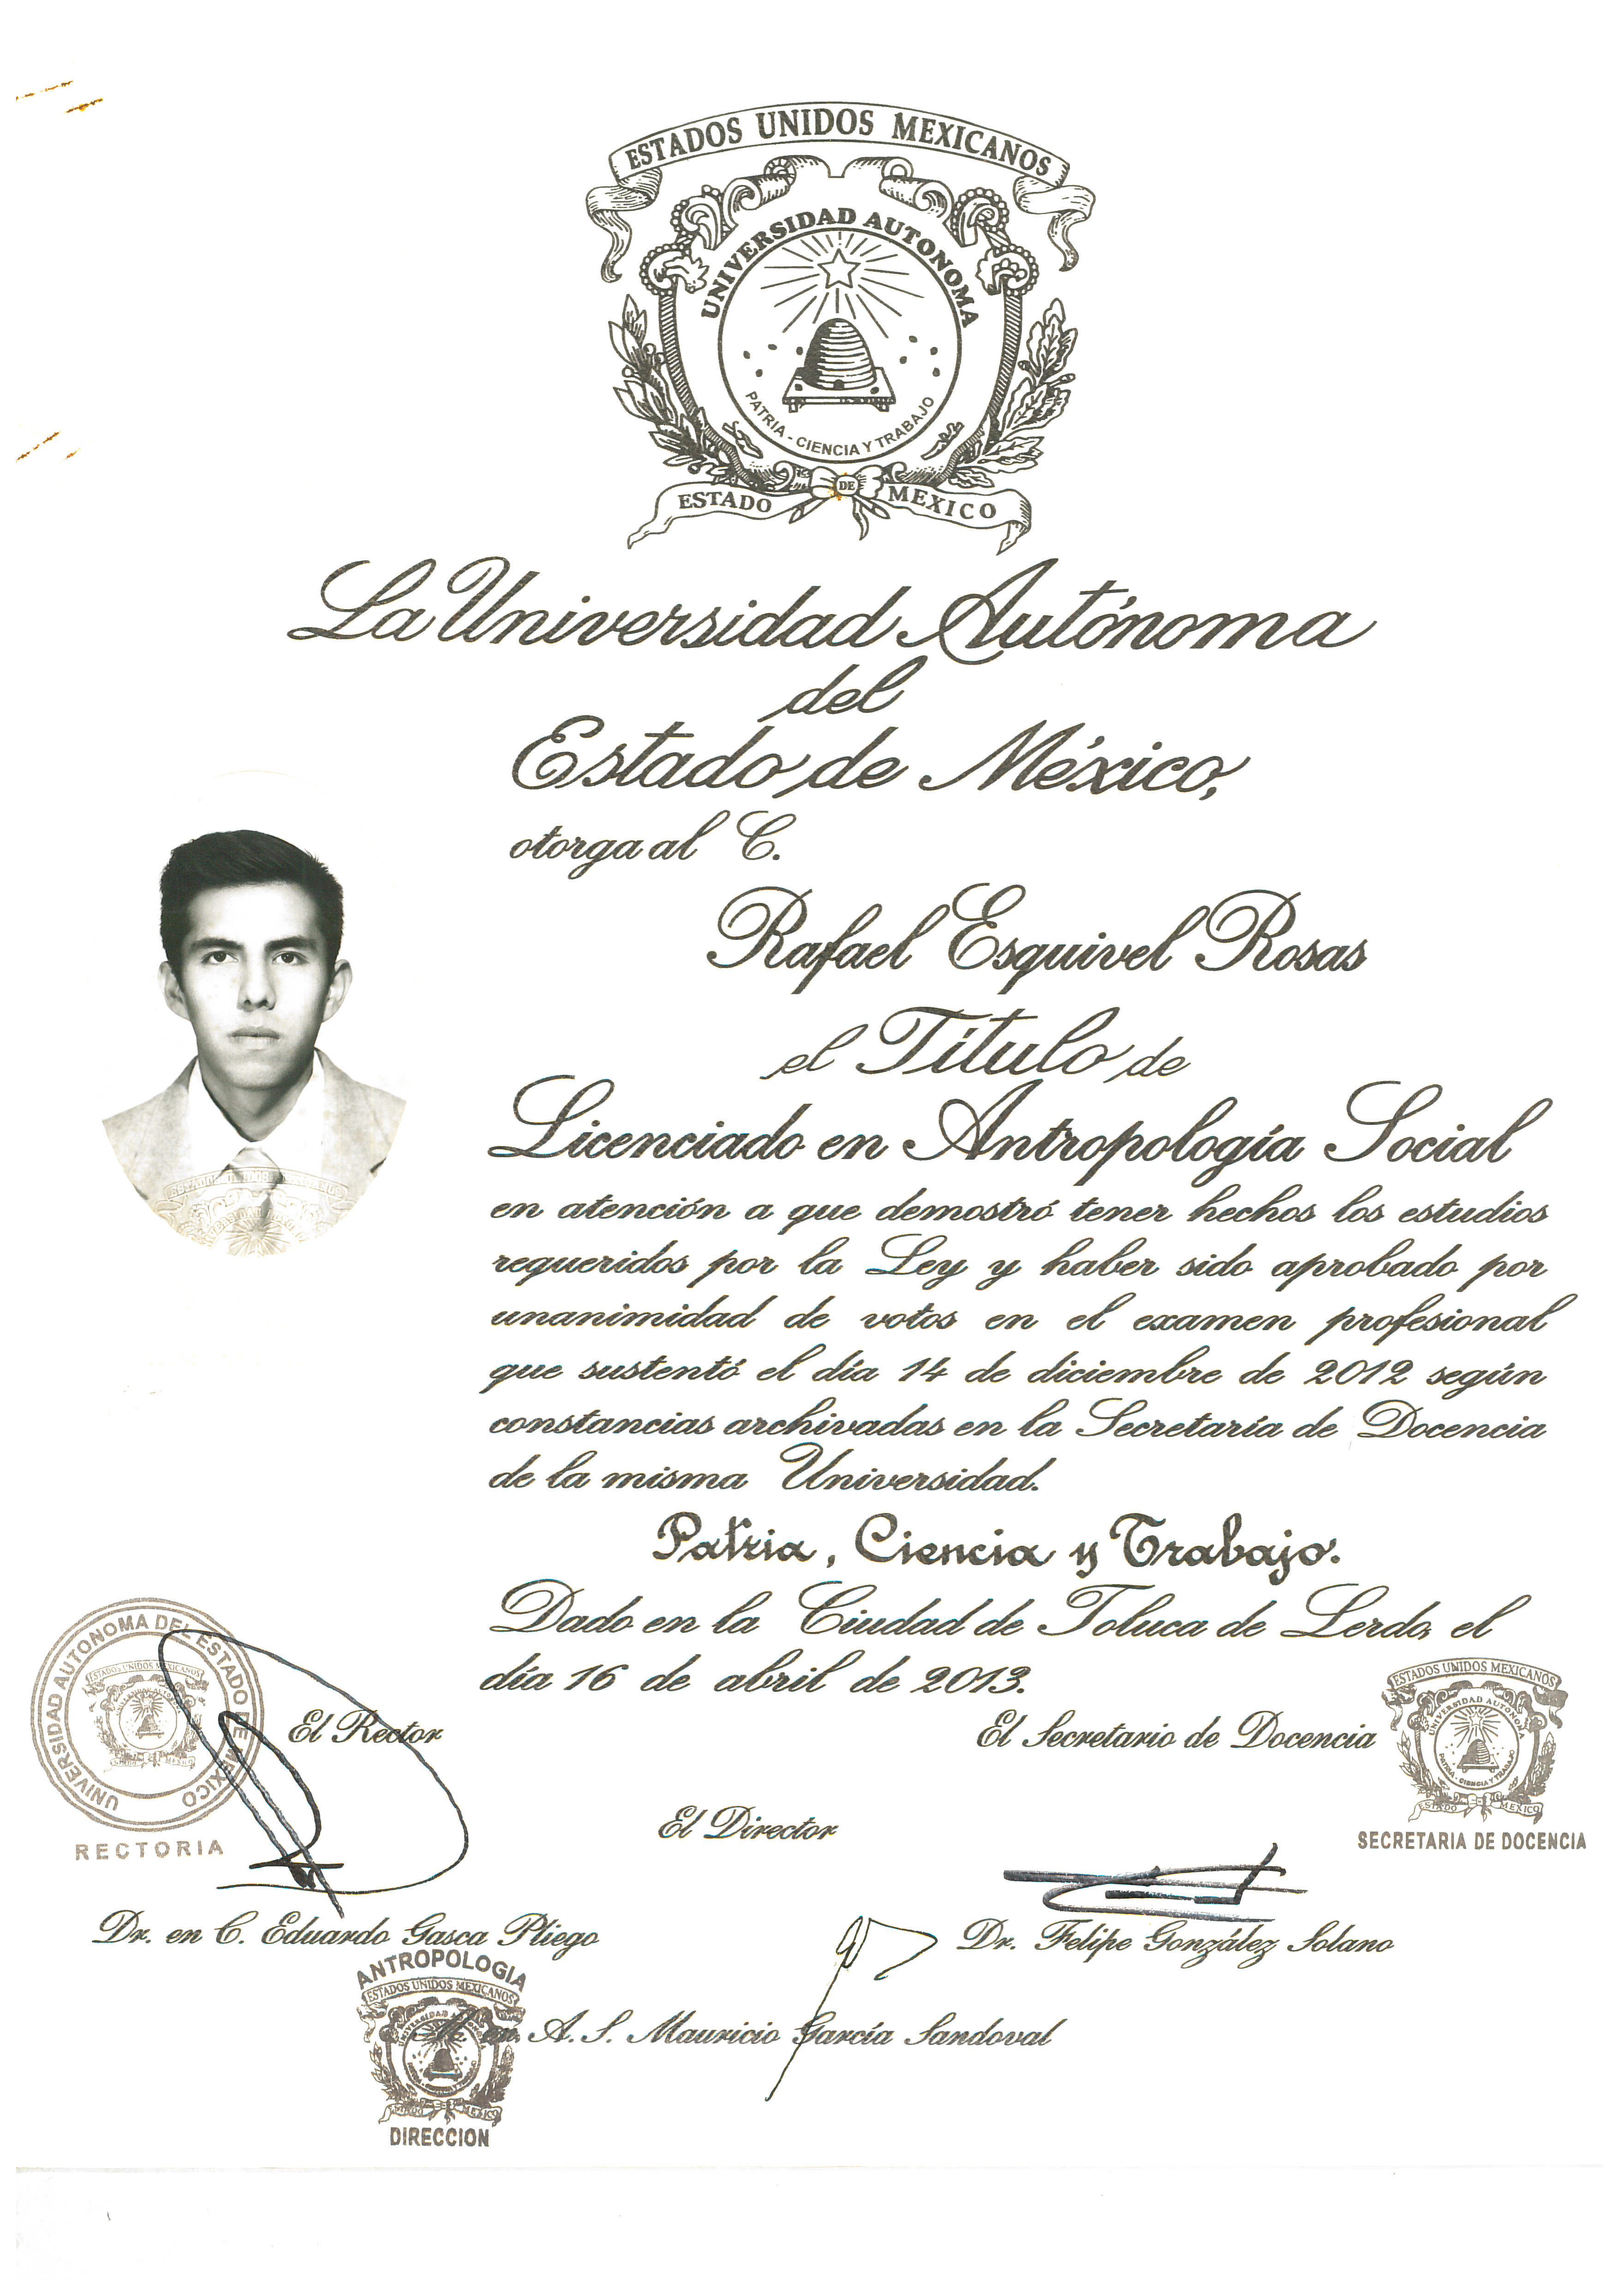 ESTADOS UNIDOS MEXICANOS
UNIVERSIDAD AUTONOMA
PATRIA - CIENCIA Y TRABAJO
ESTADO DE MEXICO
La Universidad Autónoma
del
Estado de México,
otorga al C.
Rafael Esquivel Rosas
el Título de
Licenciado en Antropología Social
en atención a que demostró tener hechos los estudios
requeridos por la Ley y haber sido aprobado por
unanimidad de votos en el examen profesional
que sustentó el día 14 de diciembre de 2012 según
constancias archivadas en la Secretaría de Docencia
de la misma Universidad.
Patria, Ciencia y Trabajo.
Dado en la Ciudad de Toluca de Lerdo, el
día 16 de abril de 2013.
UNIVERSIDAD AUTONOMA DEL ESTADO DE MEXICO
ESTADOS UNIDOS MEXICANOS
RECTORIA
El Rector
El Secretario de Docencia
ESTADOS UNIDOS MEXICANOS
UNIVERSIDAD AUTONOMA
PATRIA - CIENCIA Y TRABAJO
ESTADO DE MEXICO
SECRETARIA DE DOCENCIA
El Director
Dr. en C. Eduardo Gasca Pliego
Dr. Felipe González Solano
ANTROPOLOGIA
ESTADOS UNIDOS MEXICANOS
M. en A. S. Mauricio García Sandoval
DIRECCION